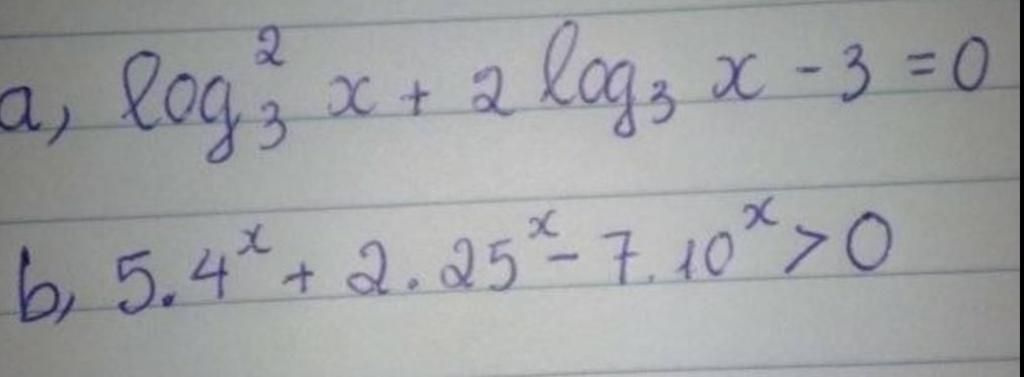 a, log₃² x + 2 log₃ x - 3 = 0
b, 5.4ˣ + 2.25ˣ - 7.10ˣ > 0